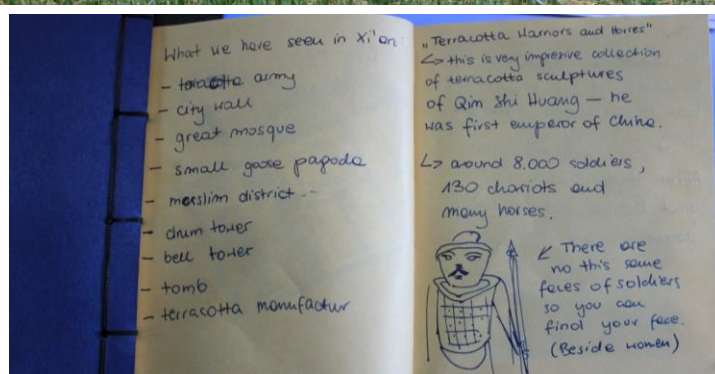 What we have seen in Xi'an:
- teracotta army
- city wall
- great mosque
- small goose pagoda
- moslim district --
- drum tower
- bell tower
- tomb
- terracotta manufactur
„Terracotta Warriors and Horses"
↳ this is very impresive collection
of terracotta sculptures
of Qim Shi Huang – he
was first emperor of China.
↳ around 8.000 soldiers,
130 chariots and
many horses.
↙ There are
no this same
faces of soldiers
so you can
find your face.
(Beside women)